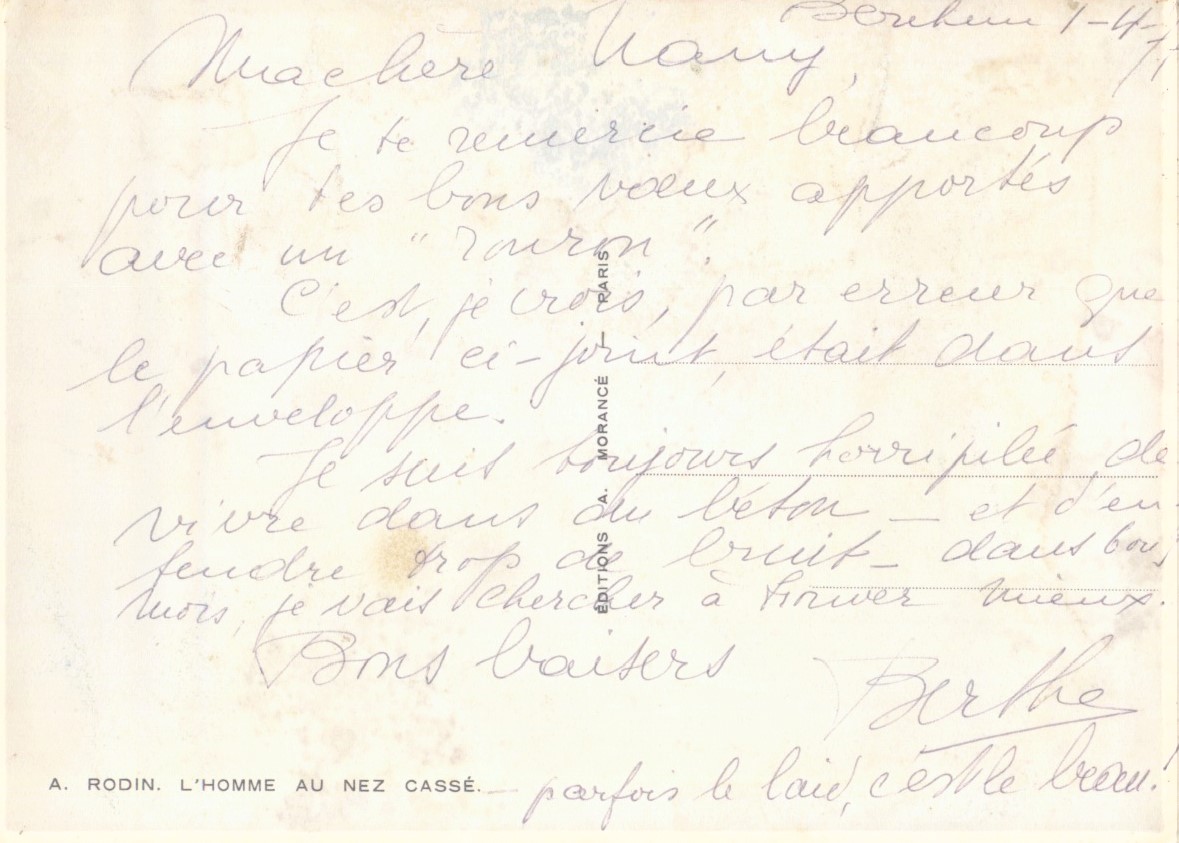 1-4-71
Ma chère Nany,
Je te remercie beaucoup
pour tes bons vœux apportés
avec un "ronron".
C'est, je crois, par erreur que
le papier ci-joint était dans
l'enveloppe.
Je suis toujours horripilée de
vivre dans du béton — et d'en-
tendre trop de bruit — dans
mois, je vais chercher à trouver mieux.
Bons baisers
Berthe
A. RODIN. L'HOMME AU NEZ CASSÉ. — parfois le laid, c'est le beau!
ÉDITIONS A. MORANCÉ — PARIS